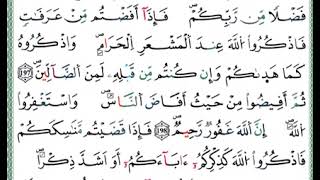 فَضْلًا مِّن رَّبِّكُمْ ۚ فَإِذَآ أَفَضْتُم مِّنْ عَرَفَٰتٍ
فَاذْكُرُوا۟ اللَّهَ عِندَ الْمَشْعَرِ الْحَرَامِ ۖ وَاذْكُرُوهُ
كَمَا هَدَىٰكُمْ وَإِن كُنتُم مِّن قَبْلِهِۦ لَمِنَ الضَّآلِّينَ ١٩٧
ثُمَّ أَفِيضُوا۟ مِنْ حَيْثُ أَفَاضَ النَّاسُ وَاسْتَغْفِرُوا۟
اللَّهَ ۚ إِنَّ اللَّهَ غَفُورٌ رَّحِيمٌ ١٩٨ فَإِذَا قَضَيْتُم مَّنَٰسِكَكُمْ
فَاذْكُرُوا۟ اللَّهَ كَذِكْرِكُمْ ءَابَآءَكُمْ أَوْ أَشَدَّ ذِكْرًا ۗ